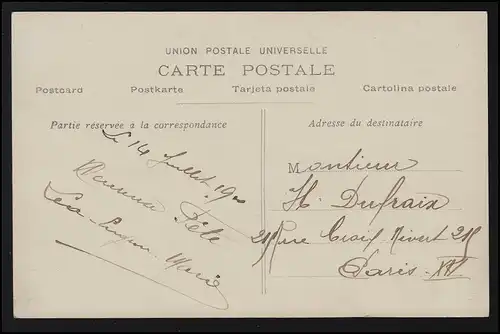 UNION POSTALE UNIVERSELLE
CARTE POSTALE
Postcard Postkarte Tarjeta postale Cartolina postale
Partie réservée à la correspondance
Adresse du destinataire
Le 14 Juillet 19
Heureuse Fête
Marie
Monsieur
H. Dufraix
211 Rue Croix Nivert 211
Paris XV